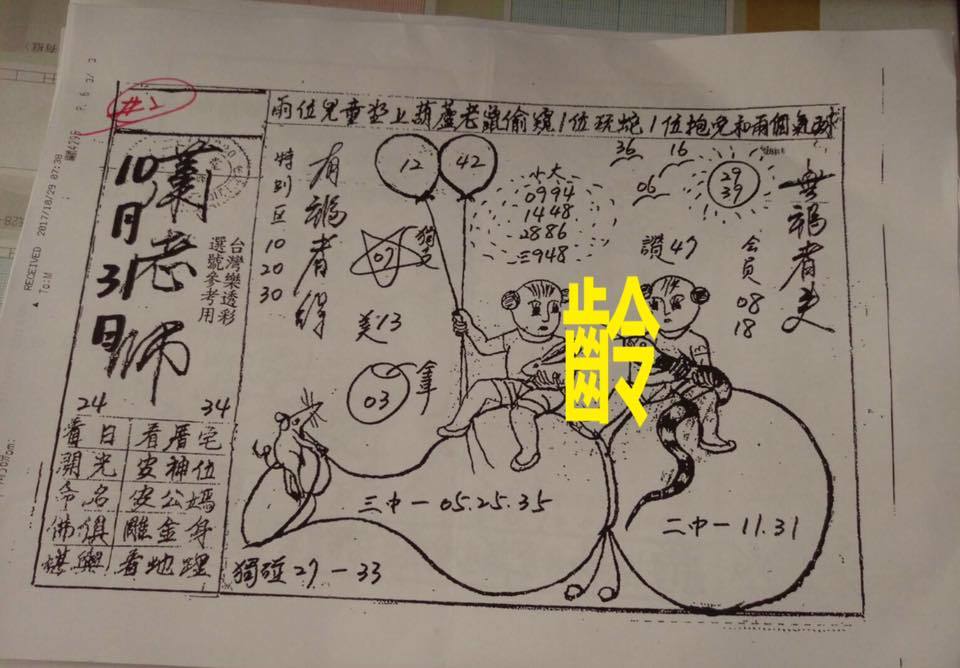 #2
兩位兒童坐上葫蘆老鼠偷窺1位玩蛇1位抱兔和兩個氣球
蕭老師
10月31日
台灣樂透彩
選號參考用
24
34
看日
看厝宅
開光
安神位
命名
安公媽
佛俱
雕金身
堪輿
看地理
特別區
10
20
30
有福者得
12
42
獨支
07
13
03
小大
0994
1448
2886
三948
36
16
06
29
39
讚47
會員
08
18
無福者失
齡
三中一05.25.35
二中一11.31
獨碰27-33
RECEIVED 2017/10/29 07:38
P. 6 3/ 3